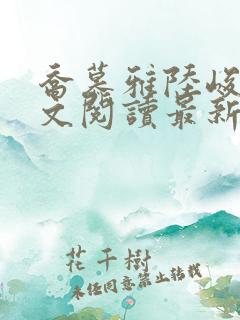 喬慕雅陸峻
文閱讀最新
花千樹
未經同意禁止轉載